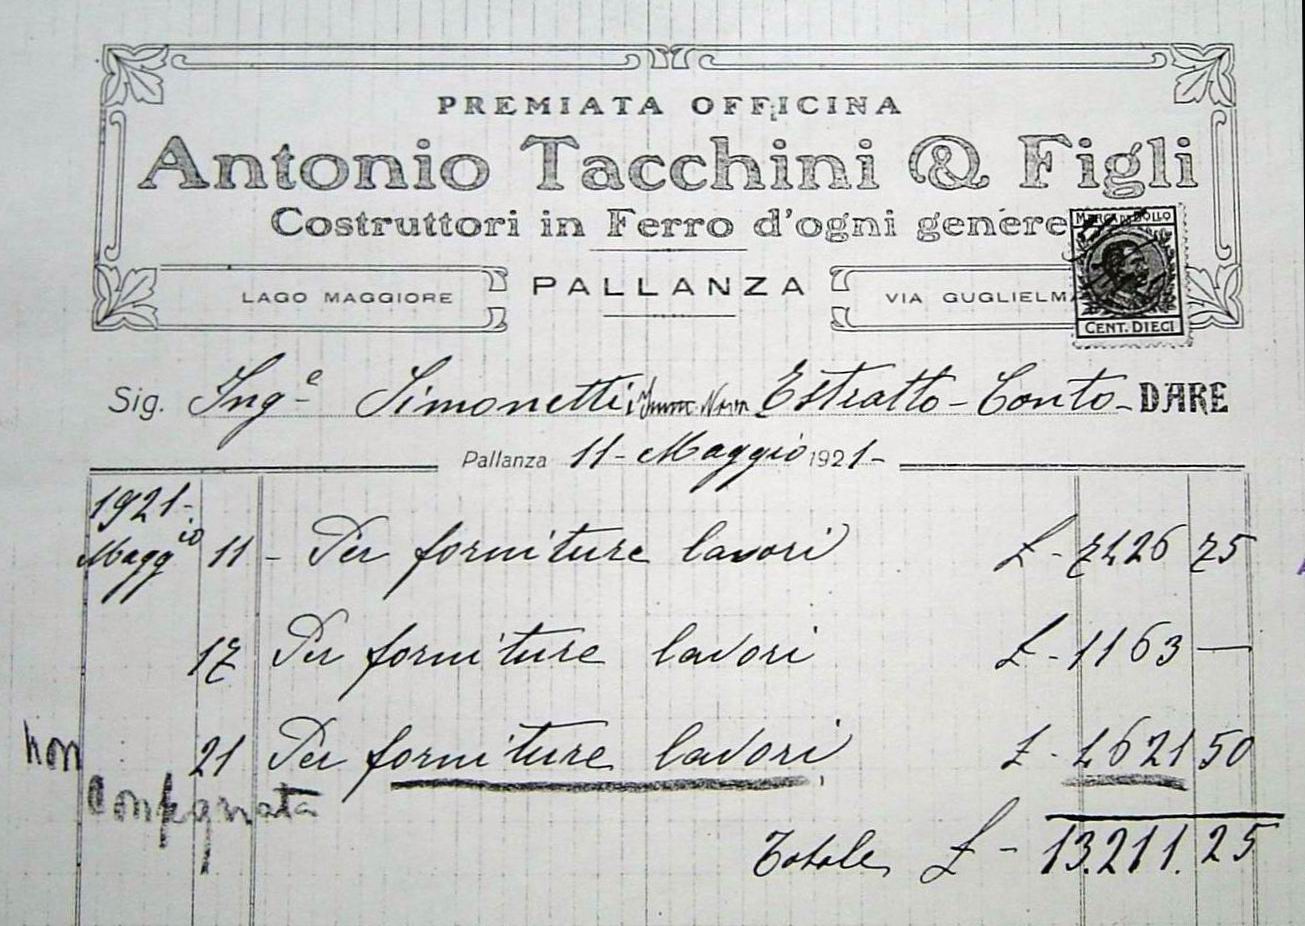 PREMIATA OFFICINA
Antonio Tacchini & Figli
Costruttori in Ferro d'ogni genere
MARCA DA BOLLO
LAGO MAGGIORE PALLANZA VIA GUGLIELM
CENT. DIECI
Sig. Ing.e Simonetti Estratto-Conto- DARE
Pallanza 11- Maggio 1921-
1921-
Magg.io 11 - Per forniture lavori £ - 7426 75
17 Per forniture lavori £ - 1163 —
non 21 Per forniture lavori £ - 4621 50
Consegnata
Totale £ - 13.211.25